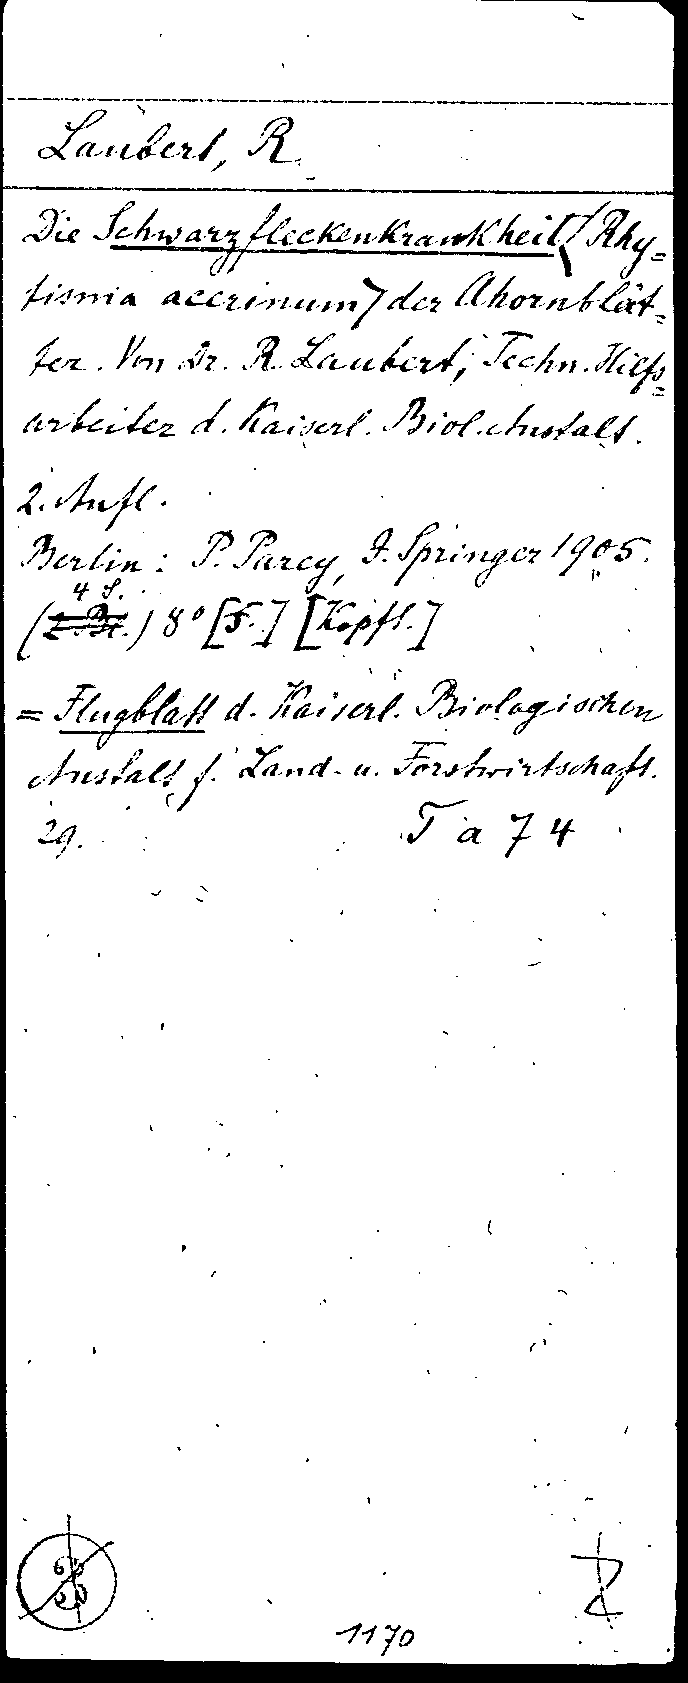 Laubert, R.
Die Schwarzfleckenkrankheit (Rhy=
tisma acerinum) der Ahornblät=
ter. Von Dr. R. Laubert, Techn. Hilfs=
arbeiter d. Kaiserl. Biol. Anstalt.
2. Aufl.
Berlin: P. Parey, J. Springer 1905.
4 S.
(2 Bl.) 8° [F.] [Kopft.]
= Flugblatt d. Kaiserl. Biologischen
Anstalt f. Land- u. Forstwirtschaft.
29. T a 74
Z
1170